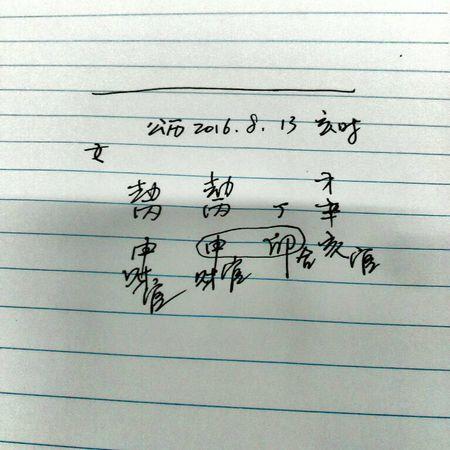 公历2016.8.13 亥时
女
劫 劫 才
丙 丙 丁 辛
申 申 卯 合 亥 官
财官 财官